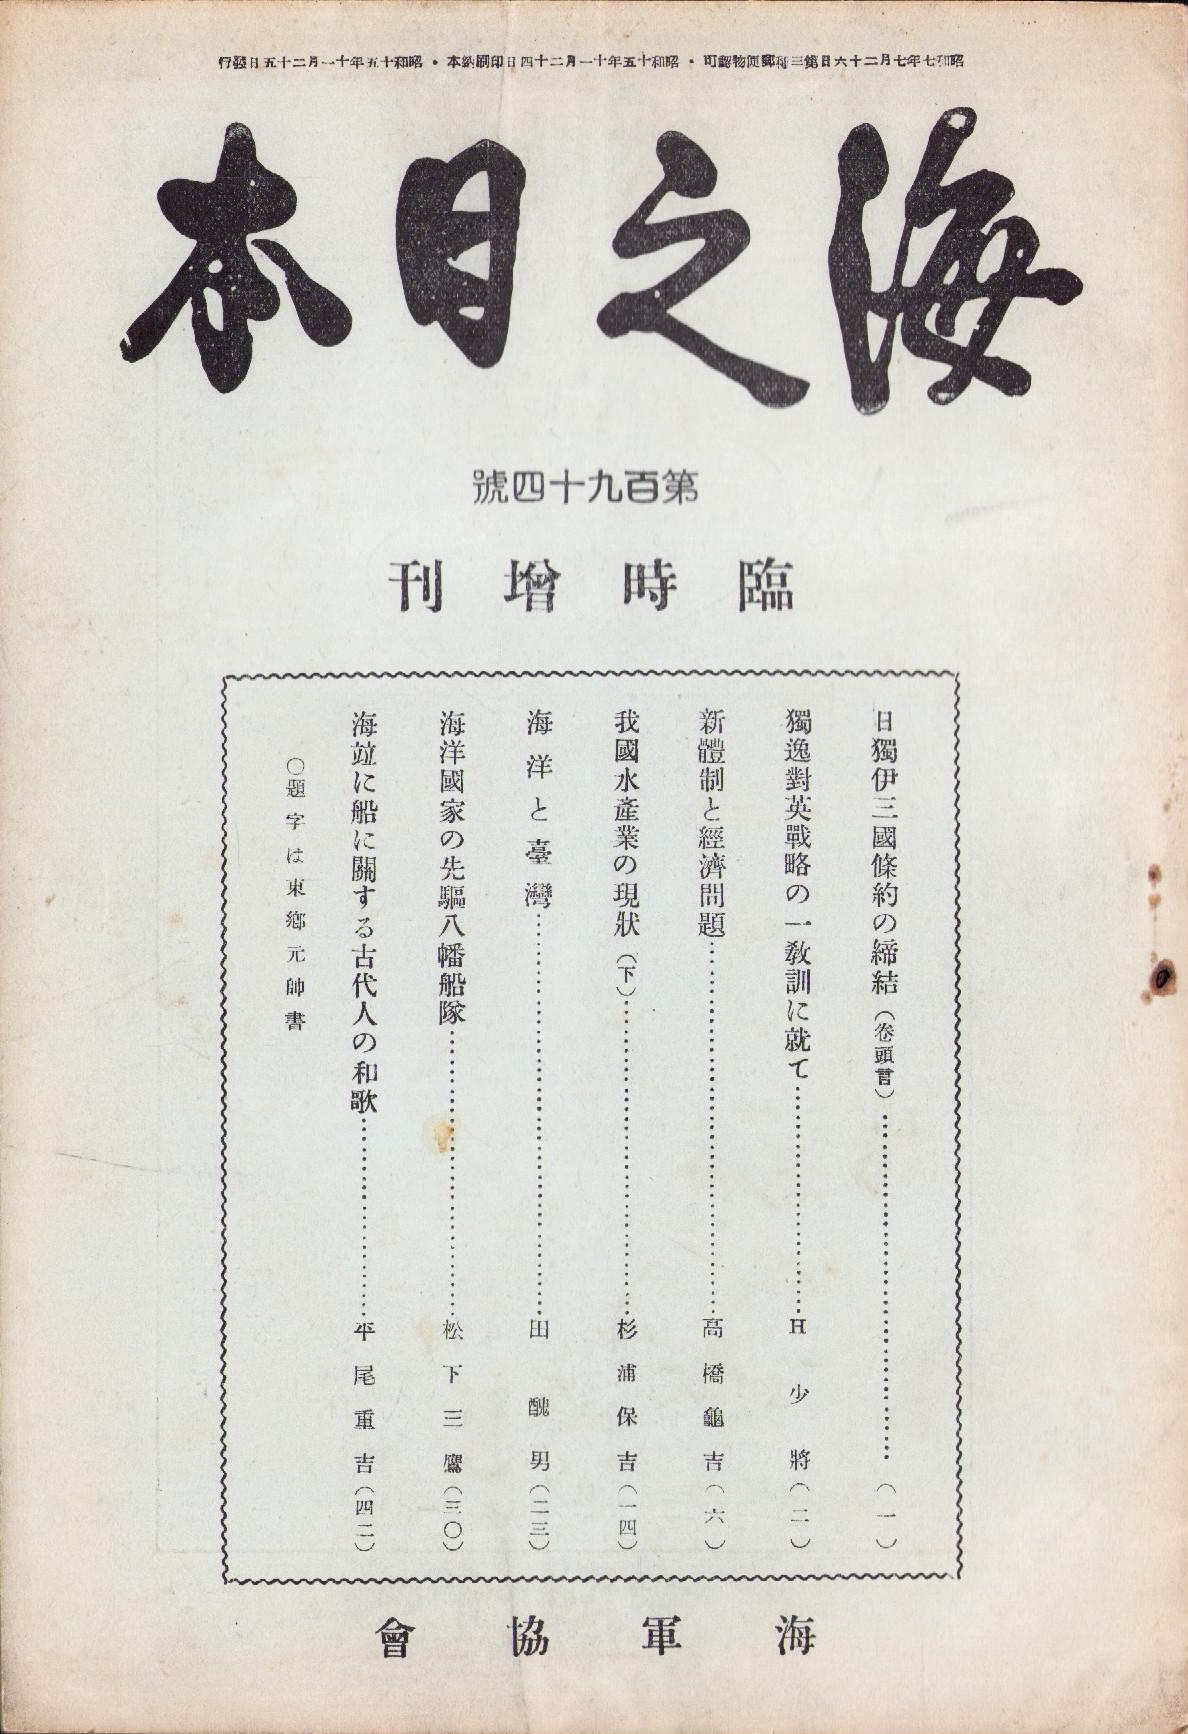 昭和七年七月二十六日第三種郵便物認可・昭和十五年十一月二十四日印刷納本・昭和十五年十一月二十五日發行
海之日本
第百九十四號
臨時增刊
日獨伊三國條約の締結（卷頭言）…（一）
獨逸對英戰略の一敎訓に就て…H少將（二）
新體制と經濟問題…高橋龜吉（六）
我國水產業の現狀（下）…杉浦保吉（一四）
海洋と臺灣…田醜男（二三）
海洋國家の先驅八幡船隊…松下三鷹（三〇）
海竝に船に關する古代人の和歌…平尾重吉（四二）
〇題字は東鄕元帥書
海軍協會